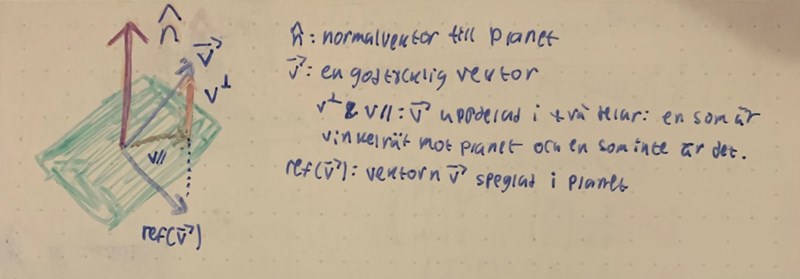 n̂
v⃗
v⊥
v//
ref(v⃗)
n̂: normalvektor till planet
v⃗: en godtycklig vektor
v⊥ & v//: v⃗ uppdelad i två delar: en som är
vinkelrät mot planet och en som inte är det.
ref(v⃗): vektorn v⃗ speglad i planet